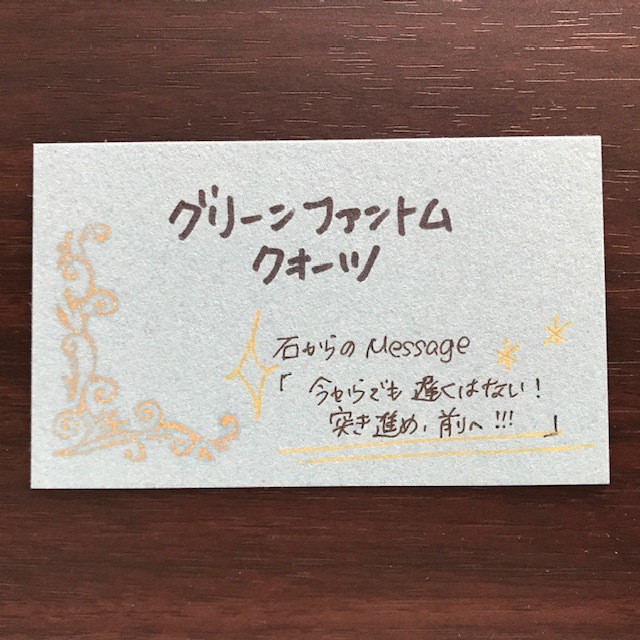 グリーンファントム
クォーツ
石からのMessage
「今からでも遅くはない!
突き進め、前へ!!!」